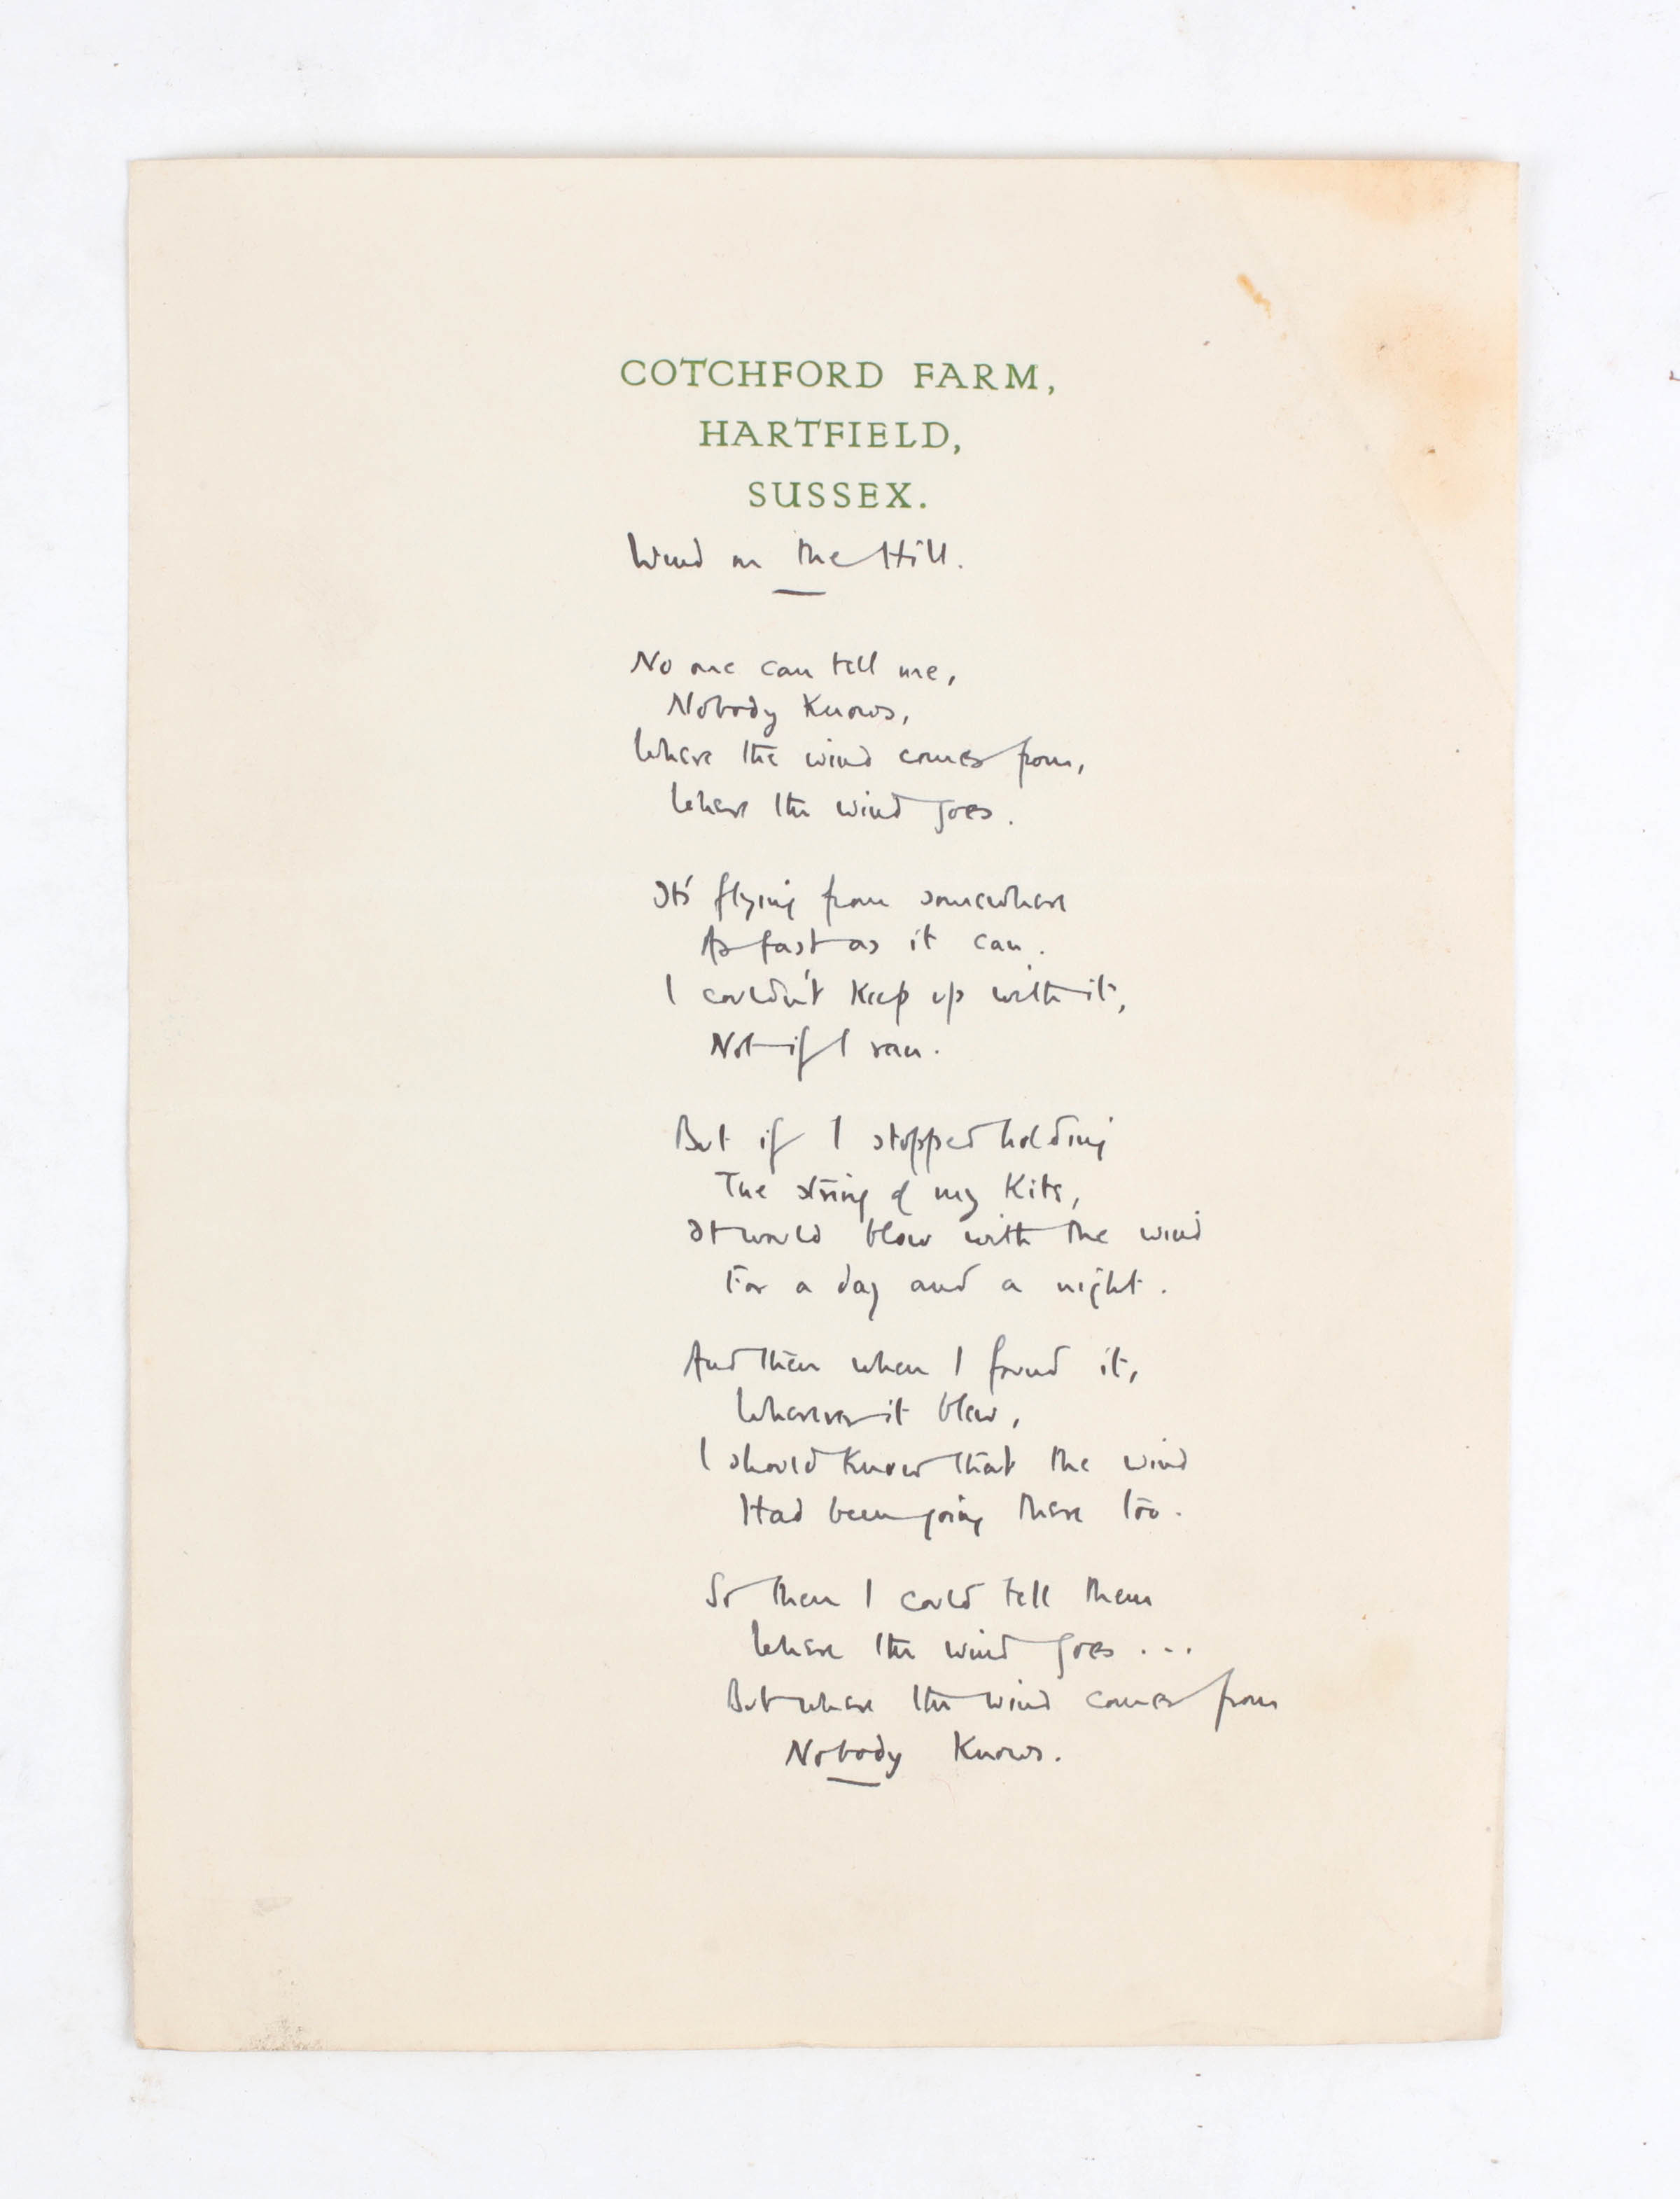 COTCHFORD FARM,
HARTFIELD,
SUSSEX.
Wind on the Hill.
No one can tell me,
Nobody knows,
Where the wind comes from,
Where the wind goes.
It's flying from somewhere
As fast as it can.
I couldn't keep up with it,
Not if I ran.
But if I stopped holding
The string of my kite,
It would blow with the wind
For a day and a night.
And then when I found it,
Wherever it blew,
I should know that the wind
Had been going there too.
So then I could tell them
Where the wind goes ...
But where the wind comes from
Nobody knows.